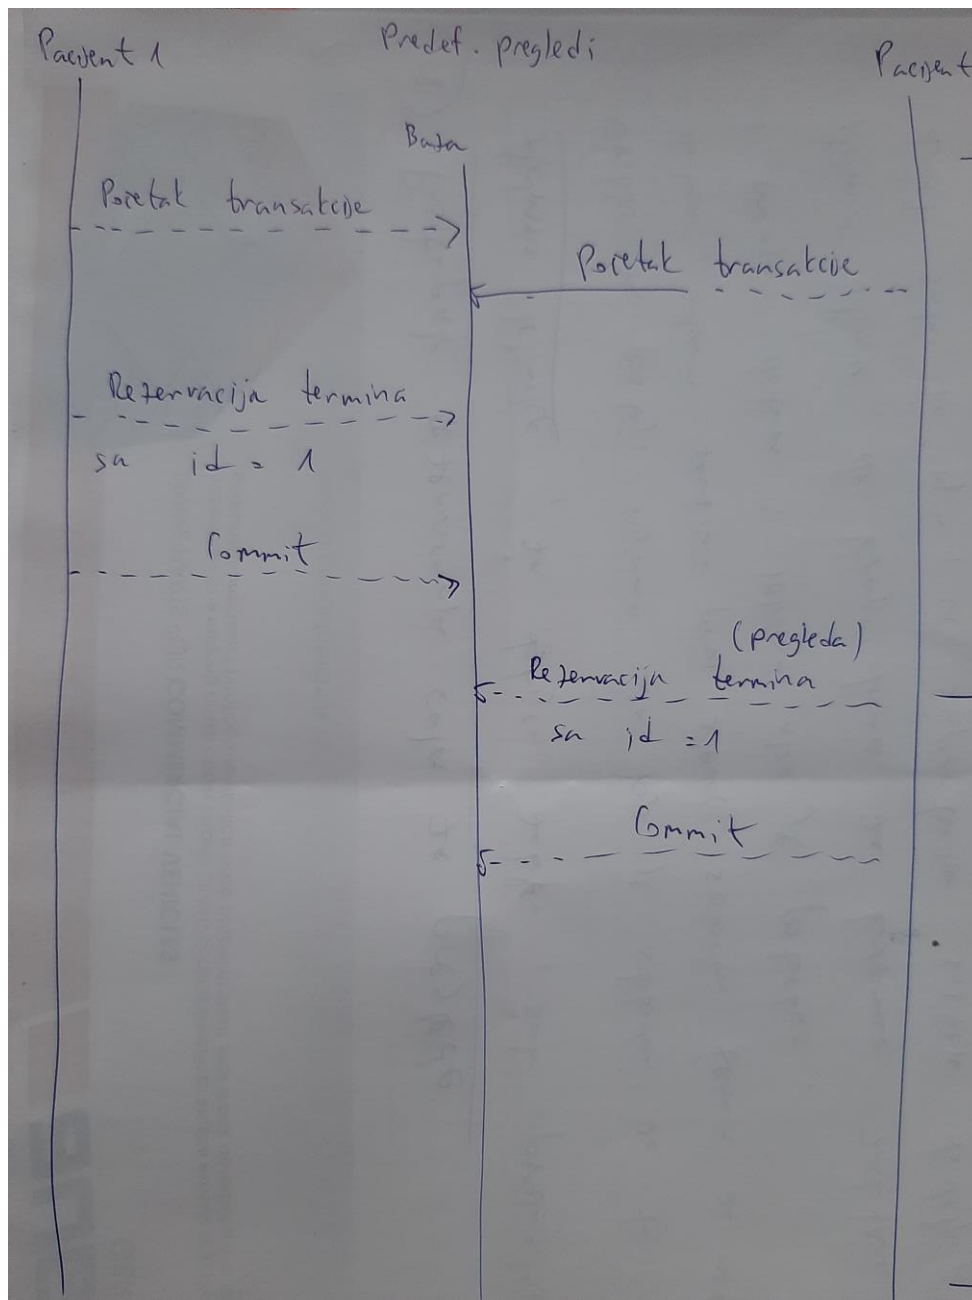 Pacijent 1
Predef. pregledi
Pacijent
Baza
Početak transakcije
Početak transakcije
Rezervacija termina
sa id = 1
Commit
(pregleda)
Rezervacija termina
sa id = 1
Commit